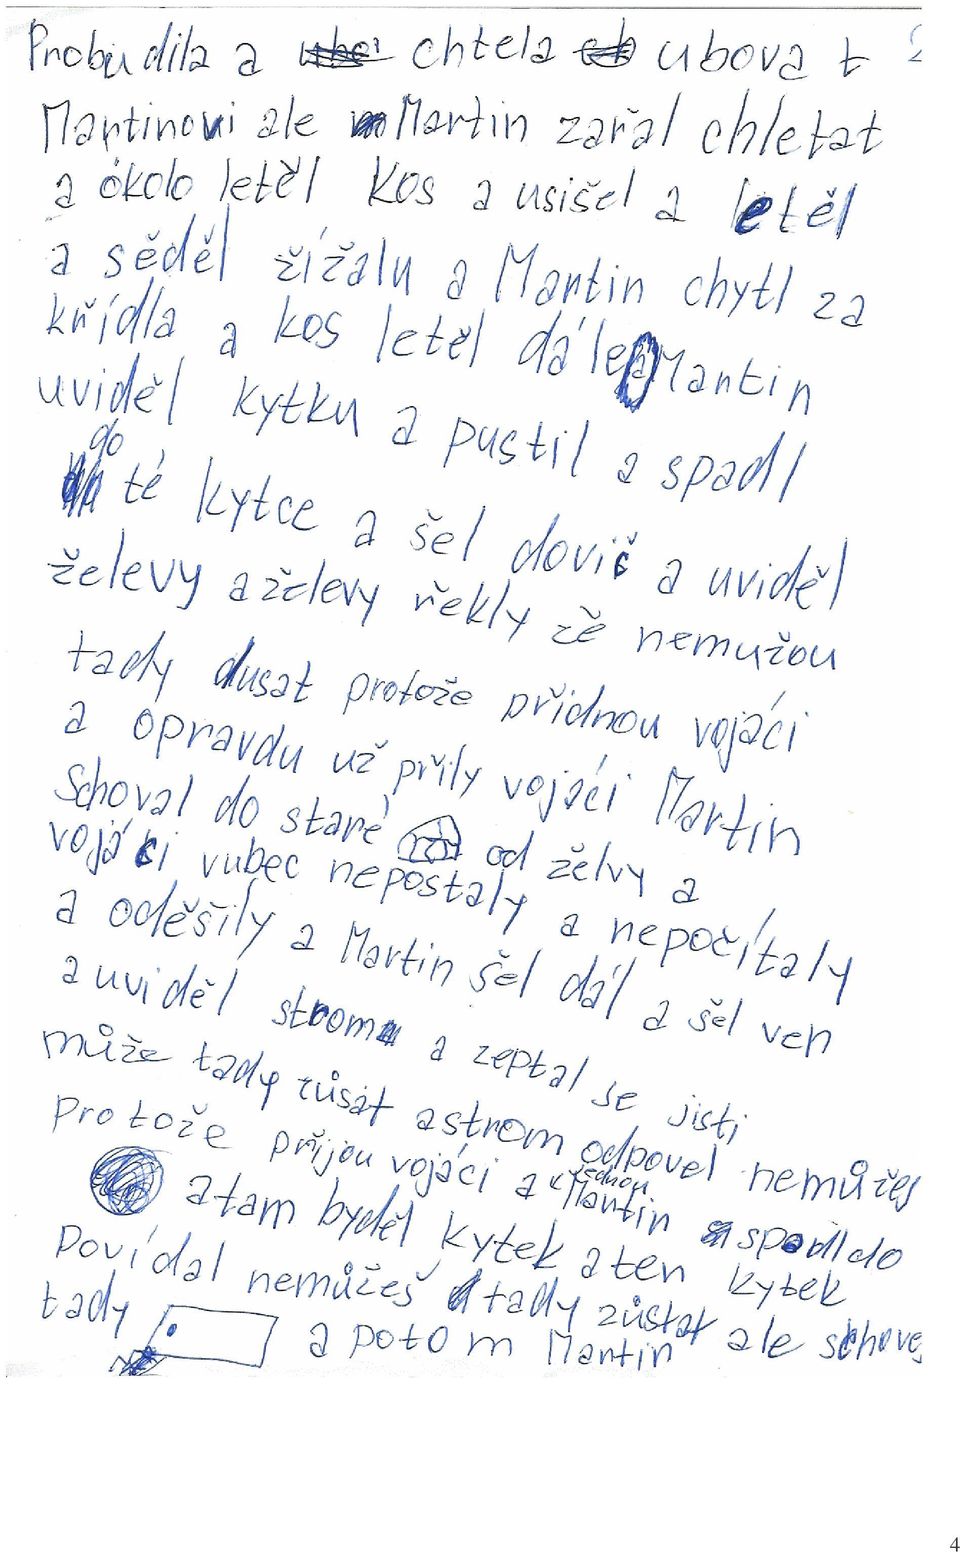 Probudila a chtela ubovat 2
Martinovi ale Martin zařal chletat
a okolo letěl kos a usišel a letěl
a séděl žížalu a Martin chytl za
křídla a kos letěl dále a Martin
uviděl kytku a pustil a spadl
do té kytce a šel dovič a uviděl
želevy a želevy řekly zě nemužou
tady dusat protože přidnou vojáci
a opravdu už přily vojáci Martin
schoval do staré od želvy a
vojáci vubec nepostaly a nepočítaly
a oděšily a Martin šel dál a šel ven
a uviděl strom a zeptal se jisti
může tady zůsat a strom odpovel nemůžeš
Protože přijou vojáci a všechnou Martin spadl do
a tam byděl kytek a ten kytek
Povídal nemůžeš tady zůstat ale schovej
tady a potom Martin
4